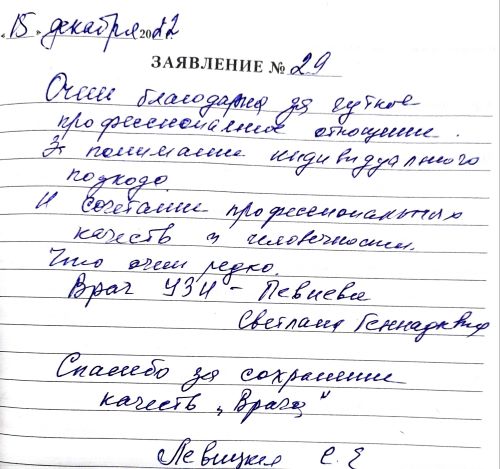 "15" декабря 2022
ЗАЯВЛЕНИЕ № 29
Очень благодарна за чуткое
профессиональное отношение.
За понимание индивидуального
подхода
И сочетание профессиональных
качеств и человечности.
Что очень редко.
Врач УЗИ - Певнева
Светлана Геннадьевна
Спасибо за сохранение
качеств "Врача"
Левицкая С. Е